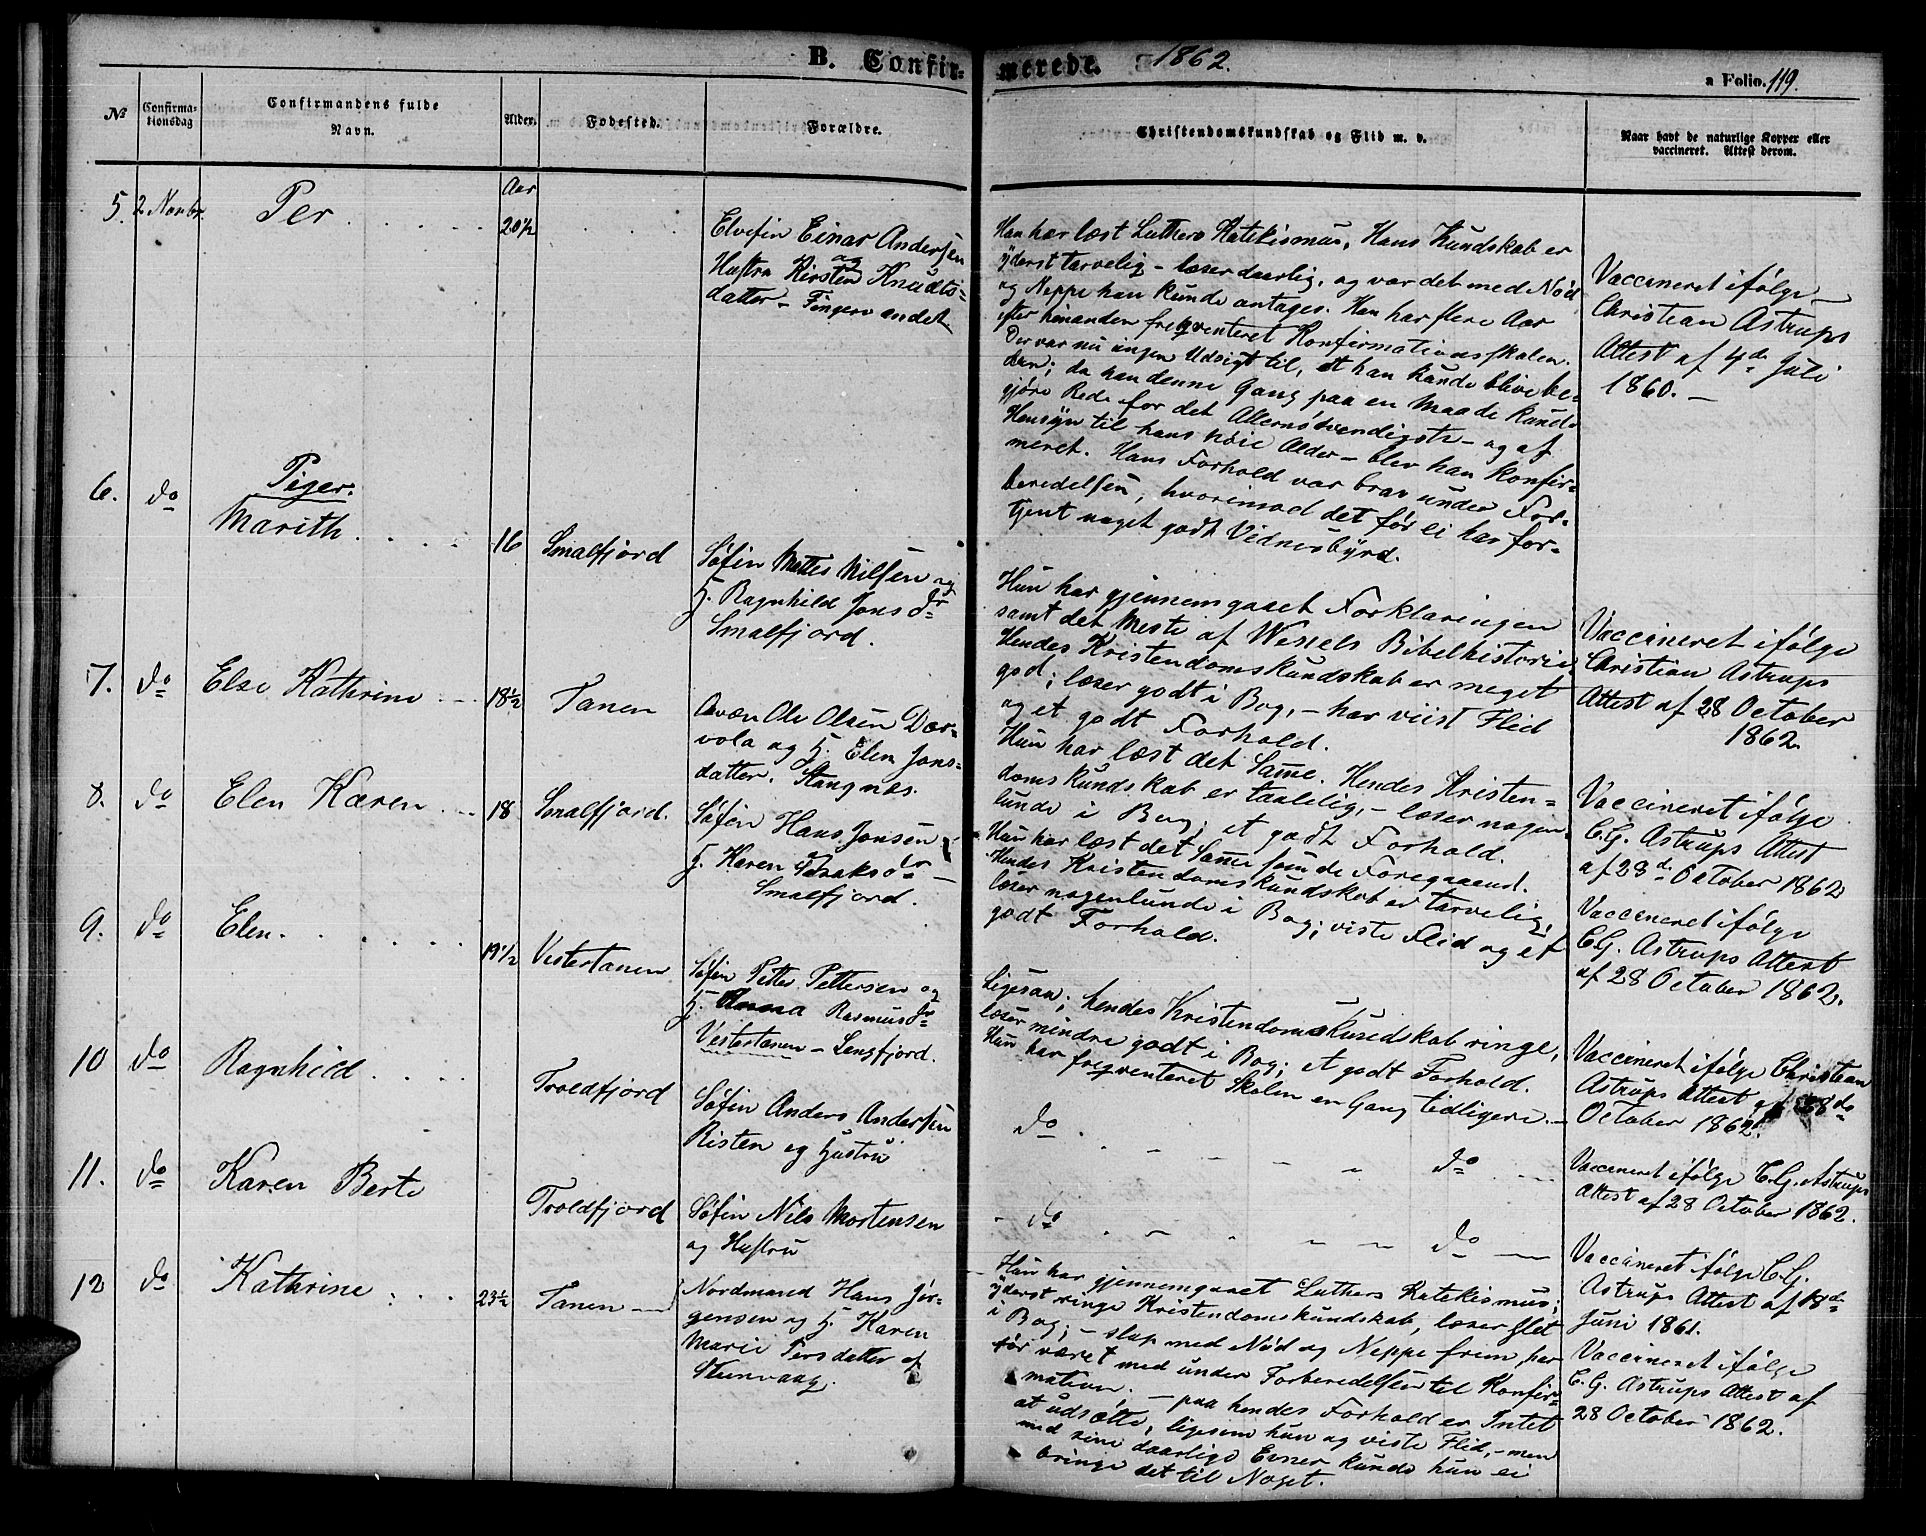 B. Confir-
merede. 1862.
a Folio. 119.
No
Confirma-
tionsdag
Confirmandens fulde
Navn.
Alder.
Fodested.
Forældre.
Christendomskundskab og Flid m. v.
Naar havt de naturlige Kopper eller
vaccineret. Attest derom.
5. 2 Novbr. Per . . . . .
Aar
20 1/2
Elvefin Einar Andersen
og
Hustru Kirsten Knudts-
datter - Fingervandet
Han har læst Luthers Katekismus, Hans Kundskab er
yderst tarvelig - læser daarlig, og var det med Nød
og Neppe han kunde antages. Han har flere Aar
efter hinanden freqventeret Konfirmationsskolen.
Der var nu ingen Udsigt til, at han kunde blive be-
dre; da han denne Gang paa en Maade kunde
gjøre Rede for det Allernødvendigste - og af
Hensyn til hans høie Alder - blev han Konfir-
meret. Hans Forhold var brav under For-
beredelsen, hvorimod det før ei har for-
tjent noget godt Vidnesbyrd.
Vaccineret ifølge
Christian Astrups
Attest af 4de Juli
1860. -
Piger.
6. do Marith . . . .
16 Smalfjord
Søfin Mattis Nilsen og
H. Ragnhild Jonsdr
Smalfjord.
Hun har gjennemgaaet Forklaringen
samt det Meste af Wexels Bibelhistorie
Hendes Kristendomskundskab er meget
god; læser godt i Bog, - har viist Flid
og et godt Forhold.
Vaccineret ifølge
Christian Astrups
Attest af 28 October
1862.
7. do Else Kathrine . - -
18 1/2 Tanen
Qvæn Ole Olsen Dær-
vola og H. Elen Jons-
datter. Stangnæs.
Hun har læst det Samme. Hendes Kristen-
domskundskab er taalelig, - læser nogen-
lunde i Bog; et godt Forhold.
Vaccineret ifølge
C.G. Astrups Attest
af 28de October 1862
8. do Elen Karen . . -
18 Smalfjord.
Søfin Hans Jonsen
H. Karen Isaksdr -
Smalfjord.
Hun har læst det Samme som de Foregaaend.
Hendes Kristendomskundskab er tarvelig,
læser nogenlunde i Bog; viste Flid og et
godt Forhold.
Vaccineret ifølge
C.G. Astrups Attest
af 28 October 1862.
9. do Elen. . . . . .
19 1/2 Vestertanen
Søfin Petter Pettersen og
H. Anna Rasmusdr
Vestertanen - Lengfjord.
Ligesaa; hendes Kristendomskundskab ringe,
læser mindre godt i Bog; et godt Forhold.
Hun har freqventeret Skolen en Gang tidligere. -
Vaccineret ifølge Christian
Astrups Attest af 28de
October 1862.
10 do Ragnhild . . . .
Troldfjord
Søfin Anders Andersen
Risten og Hustru
do . . - - - - do . - -
Vaccineret ifølge C.G. Astrups
Attest af 28 October 1862.
11. do Karen Berte
Troldfjord
Søfin Nils Mortensen
og Hustru
- do . . - - - - do -
Vaccineret ifølge C.G.
Astrups Attest af 18de
Juni 1861.
12 do Kathrine . . .
23 1/2 Tanen -
Nordmand Hans Jør-
gensen og H. Karen
Marie Persdatter af
Steenvaag.
Hun har gjennemgaaet Luthers Katekismus;
yderst ringe Kristendomskundskab, læser slet
i Bog; - slap med Nød og Neppe frem, har
før været med under Forberedelsen til Konfir-
mation. - paa hendes Forhold er Intet
at udsætte, ligesom hun og viste Flid, - men
med sine daarlige Evner kunde hun ei
bringe det til Noget.
Vaccineret ifølge
C.G. Astrups Attest af
28 October 1862.